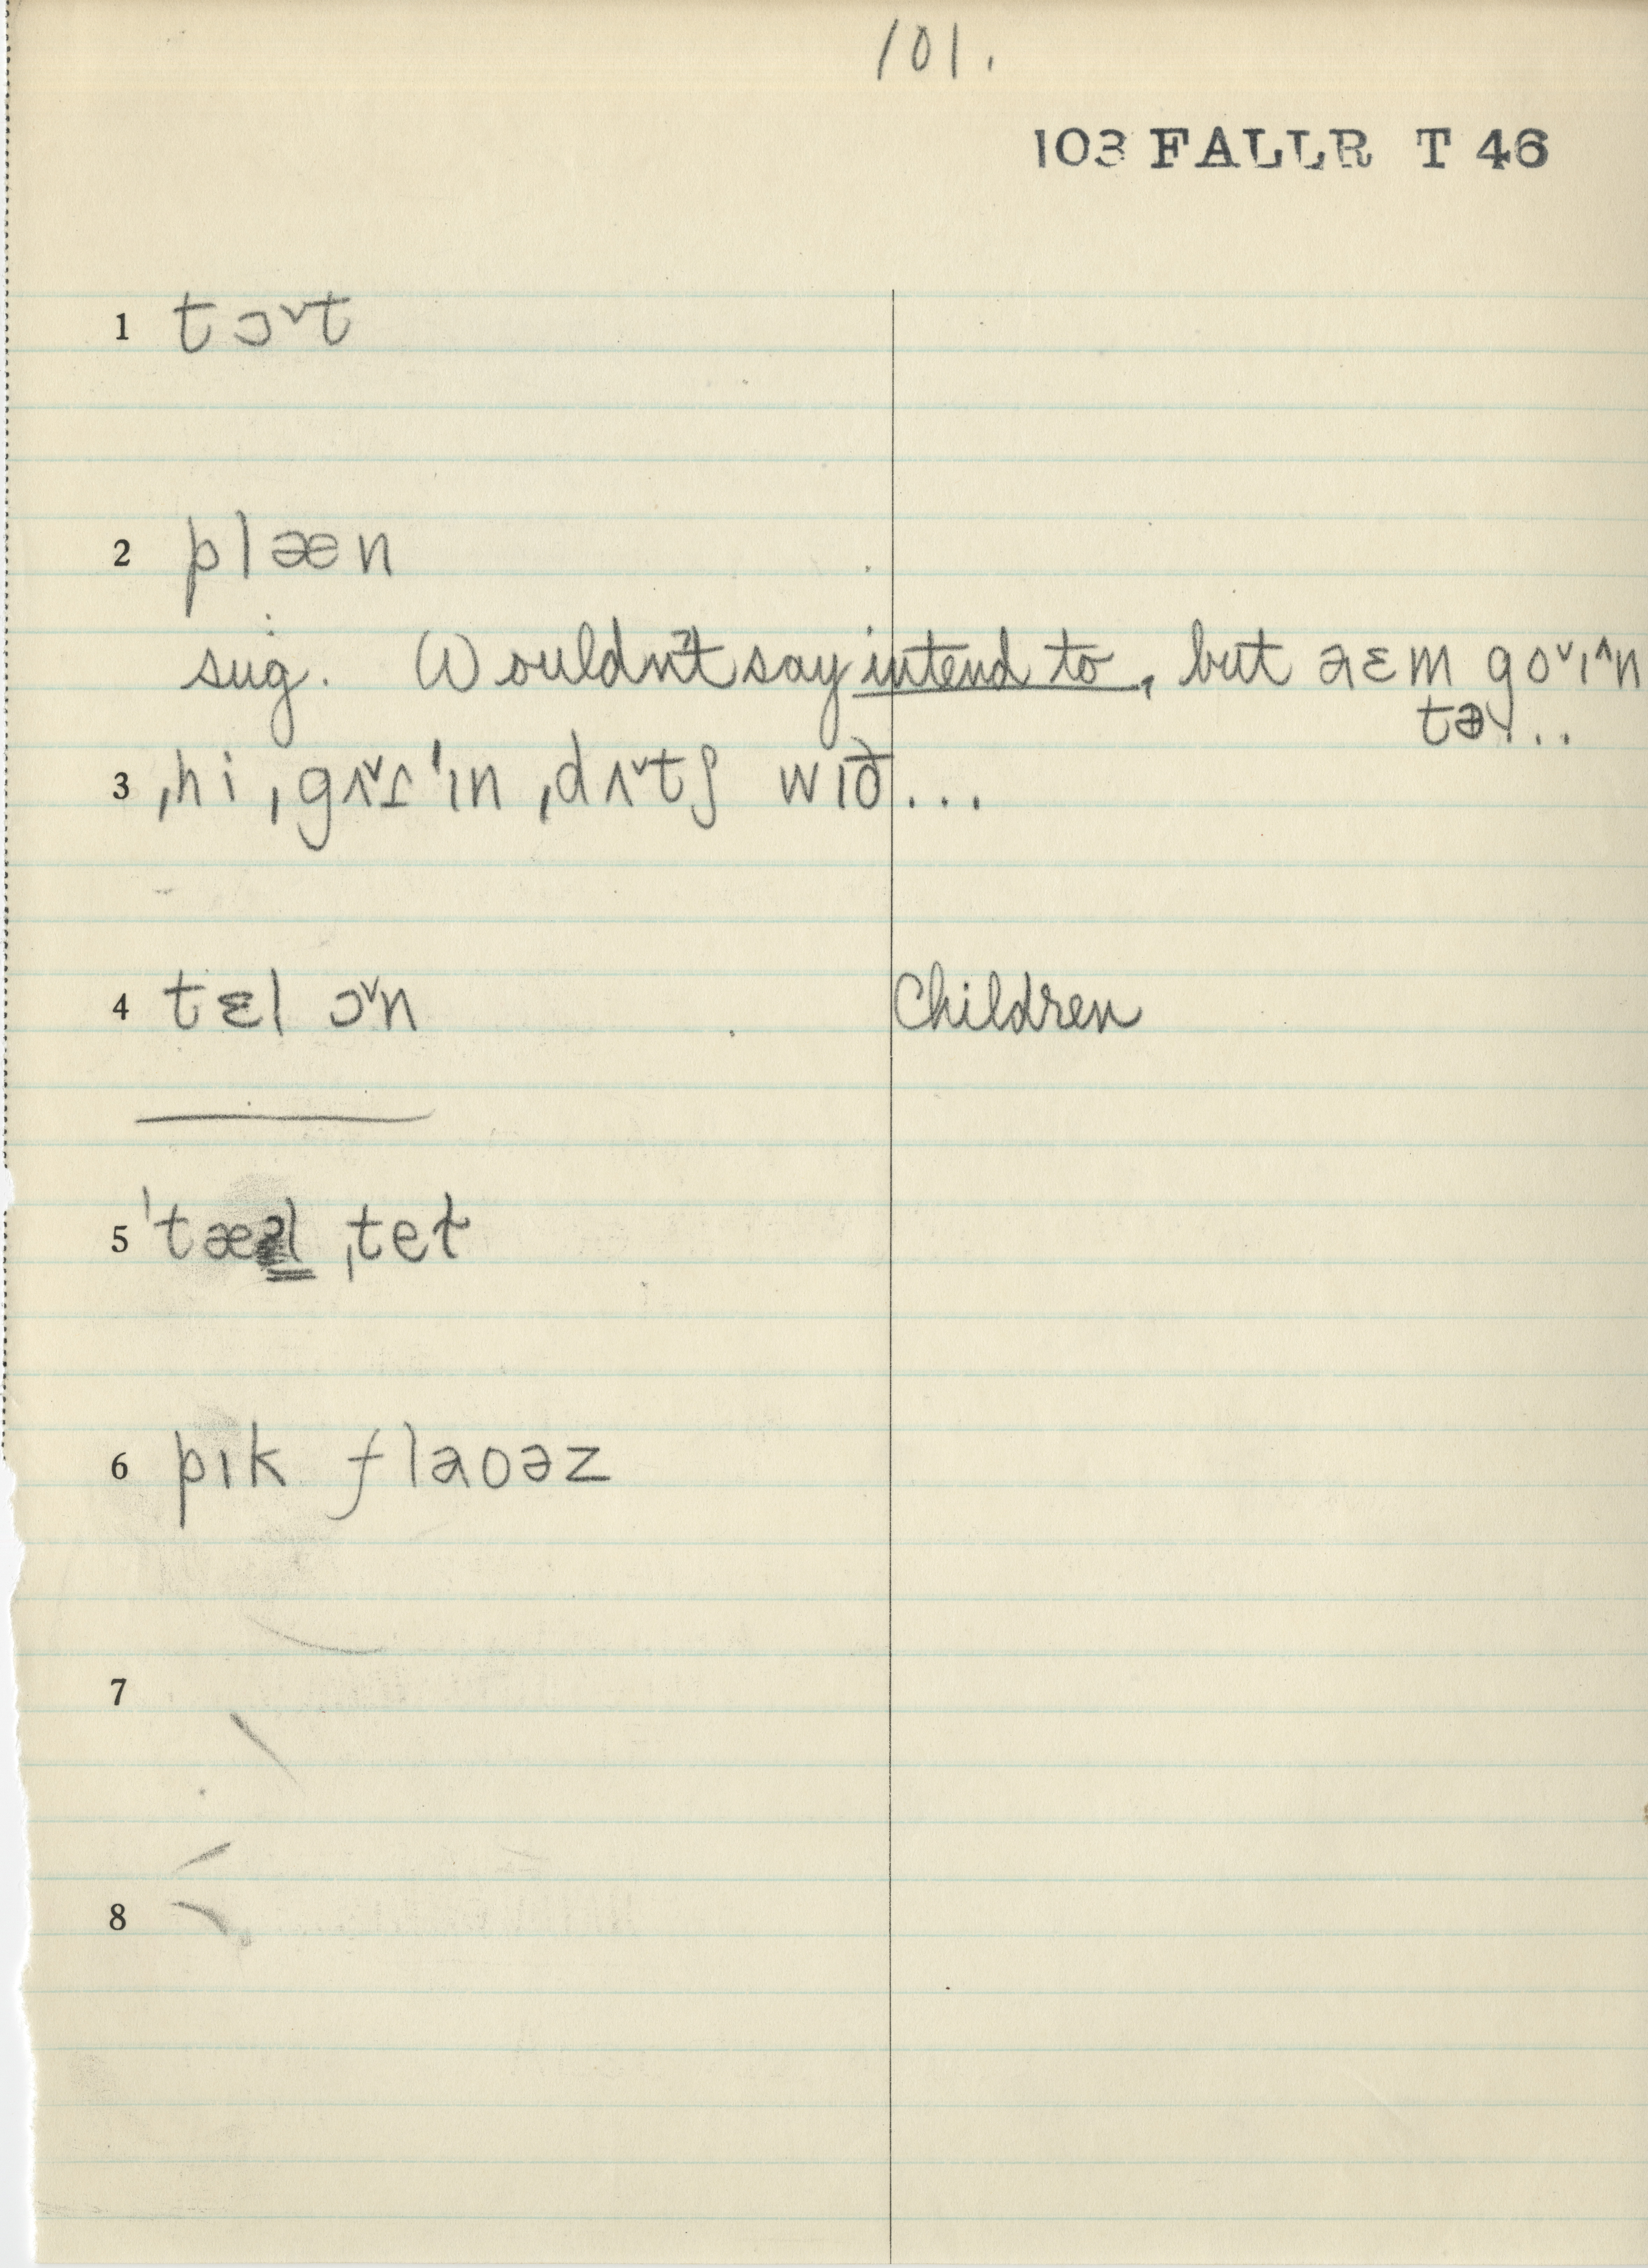 101.
103 FALLR T 46
1 tɔ˅t
2 plæn
sug. Wouldn't say intend to, but aɛm go˅ɪ˄n
tə...
3 ˌhi ˌgʌ˅ɾˈɪn ˌdʌ˅tʃ wɪð...
4 tɛl ɔ˅n Children
5 ˈtæəl ˌtet
6 pɪk flaoəz
7
8